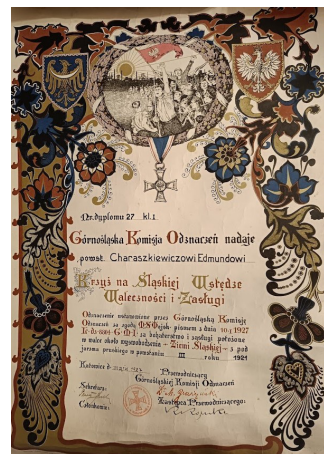 Nr. dyplomu 27 kl. I.
Górnośląska Komisja Odznaczeń nadaje
powst. Charaszkiewiczowi Edmundowi
Krzyż na Śląskiej Wstędze
Waleczności i Zasługi
Odznaczenie ustanowione przez Górnośląską Komisję
Odznaczeń za zgodą M.S.Wojsk. pismem z dnia 1927
za bohaterstwo i zasługi położone
w walce około wyswobodzenia Ziemi Śląskiej z pod
jarzma pruskiego w powstaniu III roku 1921
Katowice d. 1927
Przewodniczący
Górnośląskiej Komisji Odznaczeń
Sekretarz:
Zastępca Przewodniczącego:
Członkowie: